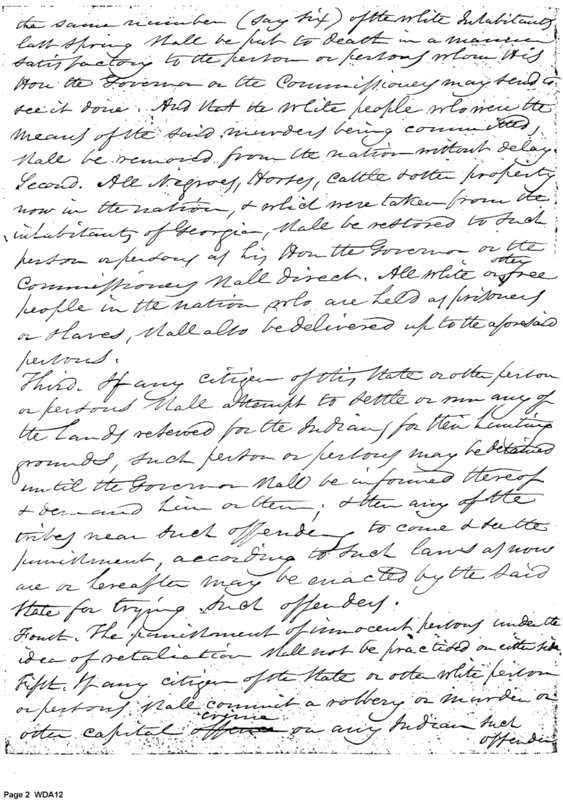 the same number (say six) of the white Inhabitants
last spring shall be put to death in a manner
satisfactory to the person or persons whom His
Hon the Governor or the Commissioners may send to
see it done. And that the white people who were the
means of the said murders being committed,
shall be removed from the nation without delay.
Second. All Negroes, Horses, Cattle & other property
now in the nation, & which were taken from the
inhabitants of Georgia, shall be restored to such
person or persons as his Hon the Governor or the
Commissioners shall direct. All white or other free
people in the nation who are held as prisoners
or slaves, shall also be delivered up to the aforesaid
persons.
Third. If any citizen of this State or other person
or persons shall attempt to settle or run any of
the lands reserved for the Indians for their hunting
grounds, such person or persons may be detained
until the Governor shall be informed thereof
& demand him or them; & then any of the
tribes near such offenders, to come & see the
punishment, according to such laws as now
are or hereafter may be enacted by the said
State for trying such offenders.
Fourth. The punishment of innocent persons under the
idea of retaliation shall not be practised on either side.
Fifth. If any citizen of the State or other white person
or persons shall commit a robbery or murder or
other capital offence crime on any Indian such
offender
Page 2 WDA12